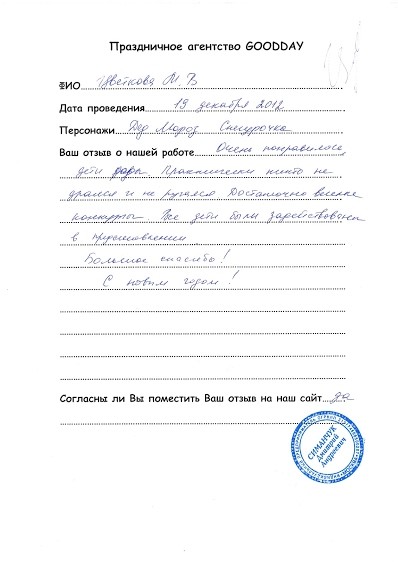 Праздничное агентство GOODDAY
ФИО Цветкова М. В
Дата проведения 19 декабря 2012
Персонажи Дед Мороз Снегурочка
Ваш отзыв о нашей работе Очень понравилось
дети рады Практически никто не
дрался и не ругался Достаточно веселые
конкурсы Все дети были задействованы
в представлении
Большое спасибо!
С новым годом!
Согласны ли Вы поместить Ваш отзыв на наш сайт да
СИМАНЧУК
Дмитрий
Андреевич